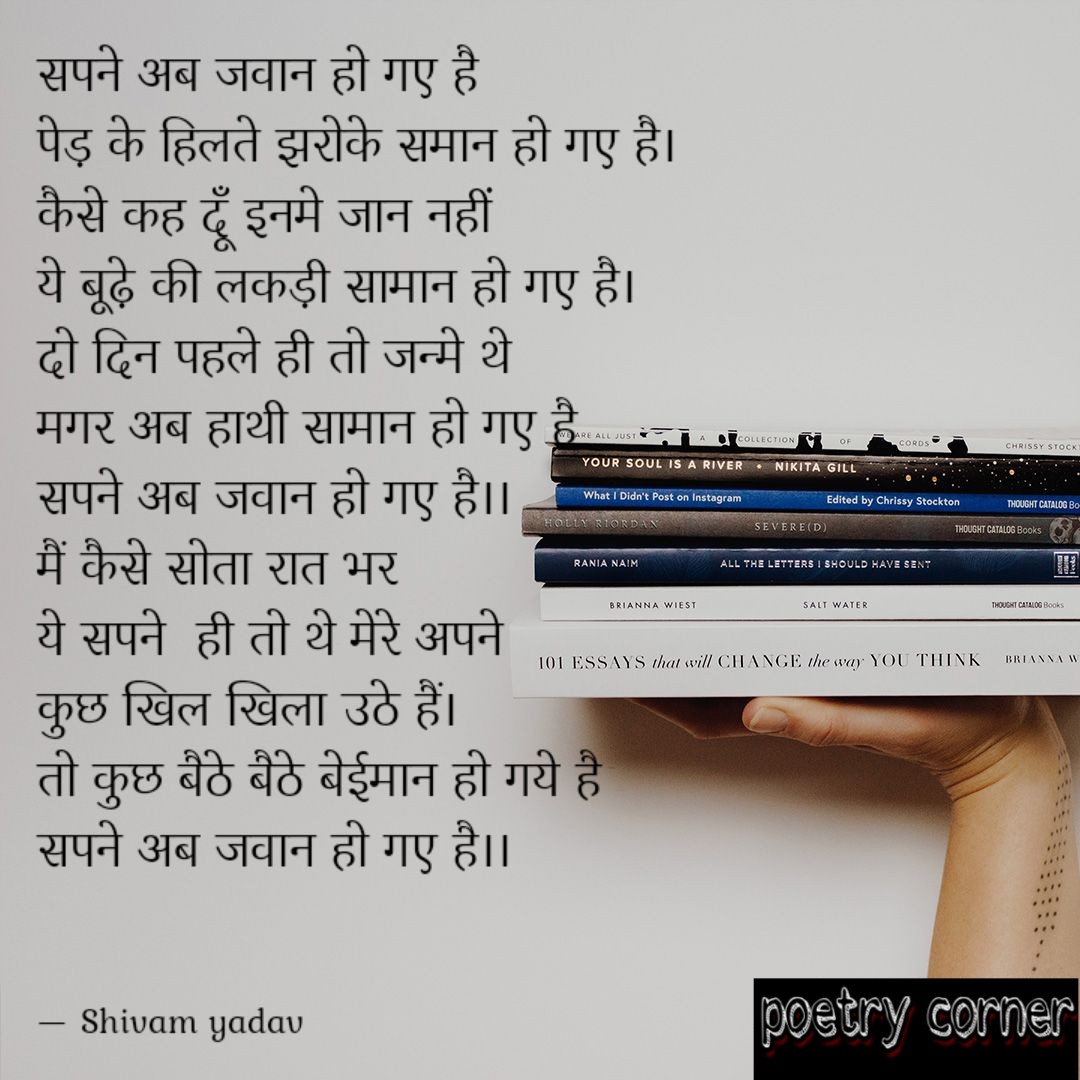 सपने अब जवान हो गए है
पेड़ के हिलते झरोके समान हो गए है।
कैसे कह दूँ इनमे जान नहीं
ये बूढ़े की लकड़ी सामान हो गए है।
दो दिन पहले ही तो जन्मे थे
मगर अब हाथी सामान हो गए है
सपने अब जवान हो गए है।।
मैं कैसे सोता रात भर
ये सपने ही तो थे मेरे अपने
कुछ खिल खिला उठे हैं।
तो कुछ बैठे बैठे बेईमान हो गये है
सपने अब जवान हो गए है।।
— Shivam yadav
WE ARE ALL JUST A COLLECTION OF CORDS CHRISSY STOCKT
YOUR SOUL IS A RIVER • NIKITA GILL
What I Didn't Post on Instagram Edited by Chrissy Stockton THOUGHT CATALOG Bo
HOLLY RIORDAN SEVERE(D) THOUGHT CATALOG Books
RANIA NAIM ALL THE LETTERS I SHOULD HAVE SENT
BRIANNA WIEST SALT WATER THOUGHT CATALOG Books
101 ESSAYS that will CHANGE the way YOU THINK BRIANNA W
poetry corner